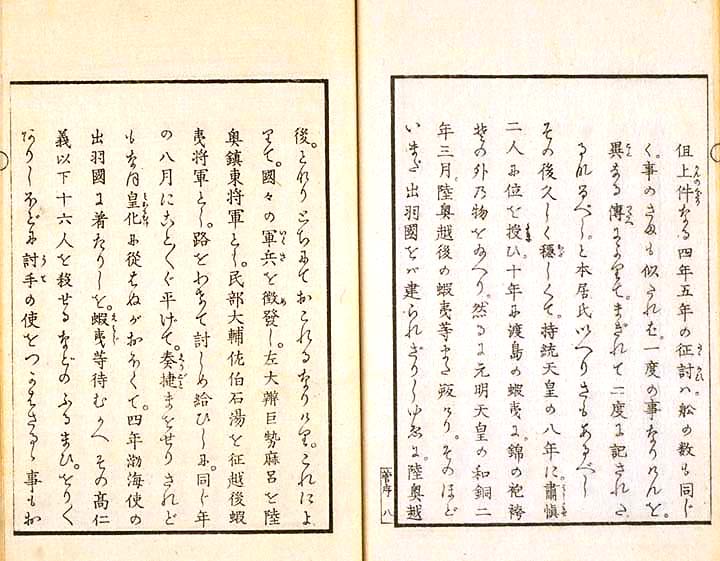 但上件なる四年五年の征討ハ船の数も同じ
く。事のさまも似されば。一度の事なりけんを。
異なる傳によりて。まぎれて二度に記された
るなるべし。と本居氏いへりさもあるべし
その後久しく穏しくて。持統天皇の八年に。肅愼
二人に位を授ひ。十年に渡島の蝦夷に。錦の袍袴
その外乃物を給へり。然るに元明天皇の和銅二
年三月。陸奥越後の蝦夷等また叛けり。そのほど
いまだ出羽國をバ建られざりしゆゑに。陸奥越
後。とれり これによ
りて。國々の軍兵を徴發し。左大辨巨勢麻呂を陸
奥鎮東将軍とし。民部大輔佐伯石湯を征越後蝦
夷将軍とし。路をわきて討しめ給ひしに。同じ年
の八月にことくぐ平けて。奏捷まをせりされど
もなほ皇化に從はぬがおほくて。四年渤海使の
出羽國に着たりしを。蝦夷等待むかへその髙仁
義以下十六人を殺せるなどのふるまひ。をりく
なりしほどに討手の使をつかはさるゝ事もお
菅序 八